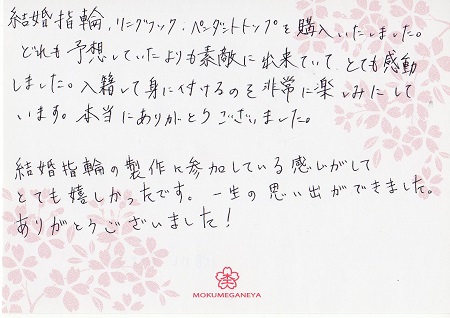 結婚指輪、リングフック・ペンダントトップを購入いたしました。
どれも予想していたよりも素敵に出来ていて、とても感動
しました。入籍して身に付けるのを非常に楽しみにして
います。本当にありがとうございました。
結婚指輪の製作に参加している感じがして
とても嬉しかったです。一生の思い出ができました。
ありがとうございました！
MOKUMEGANEYA